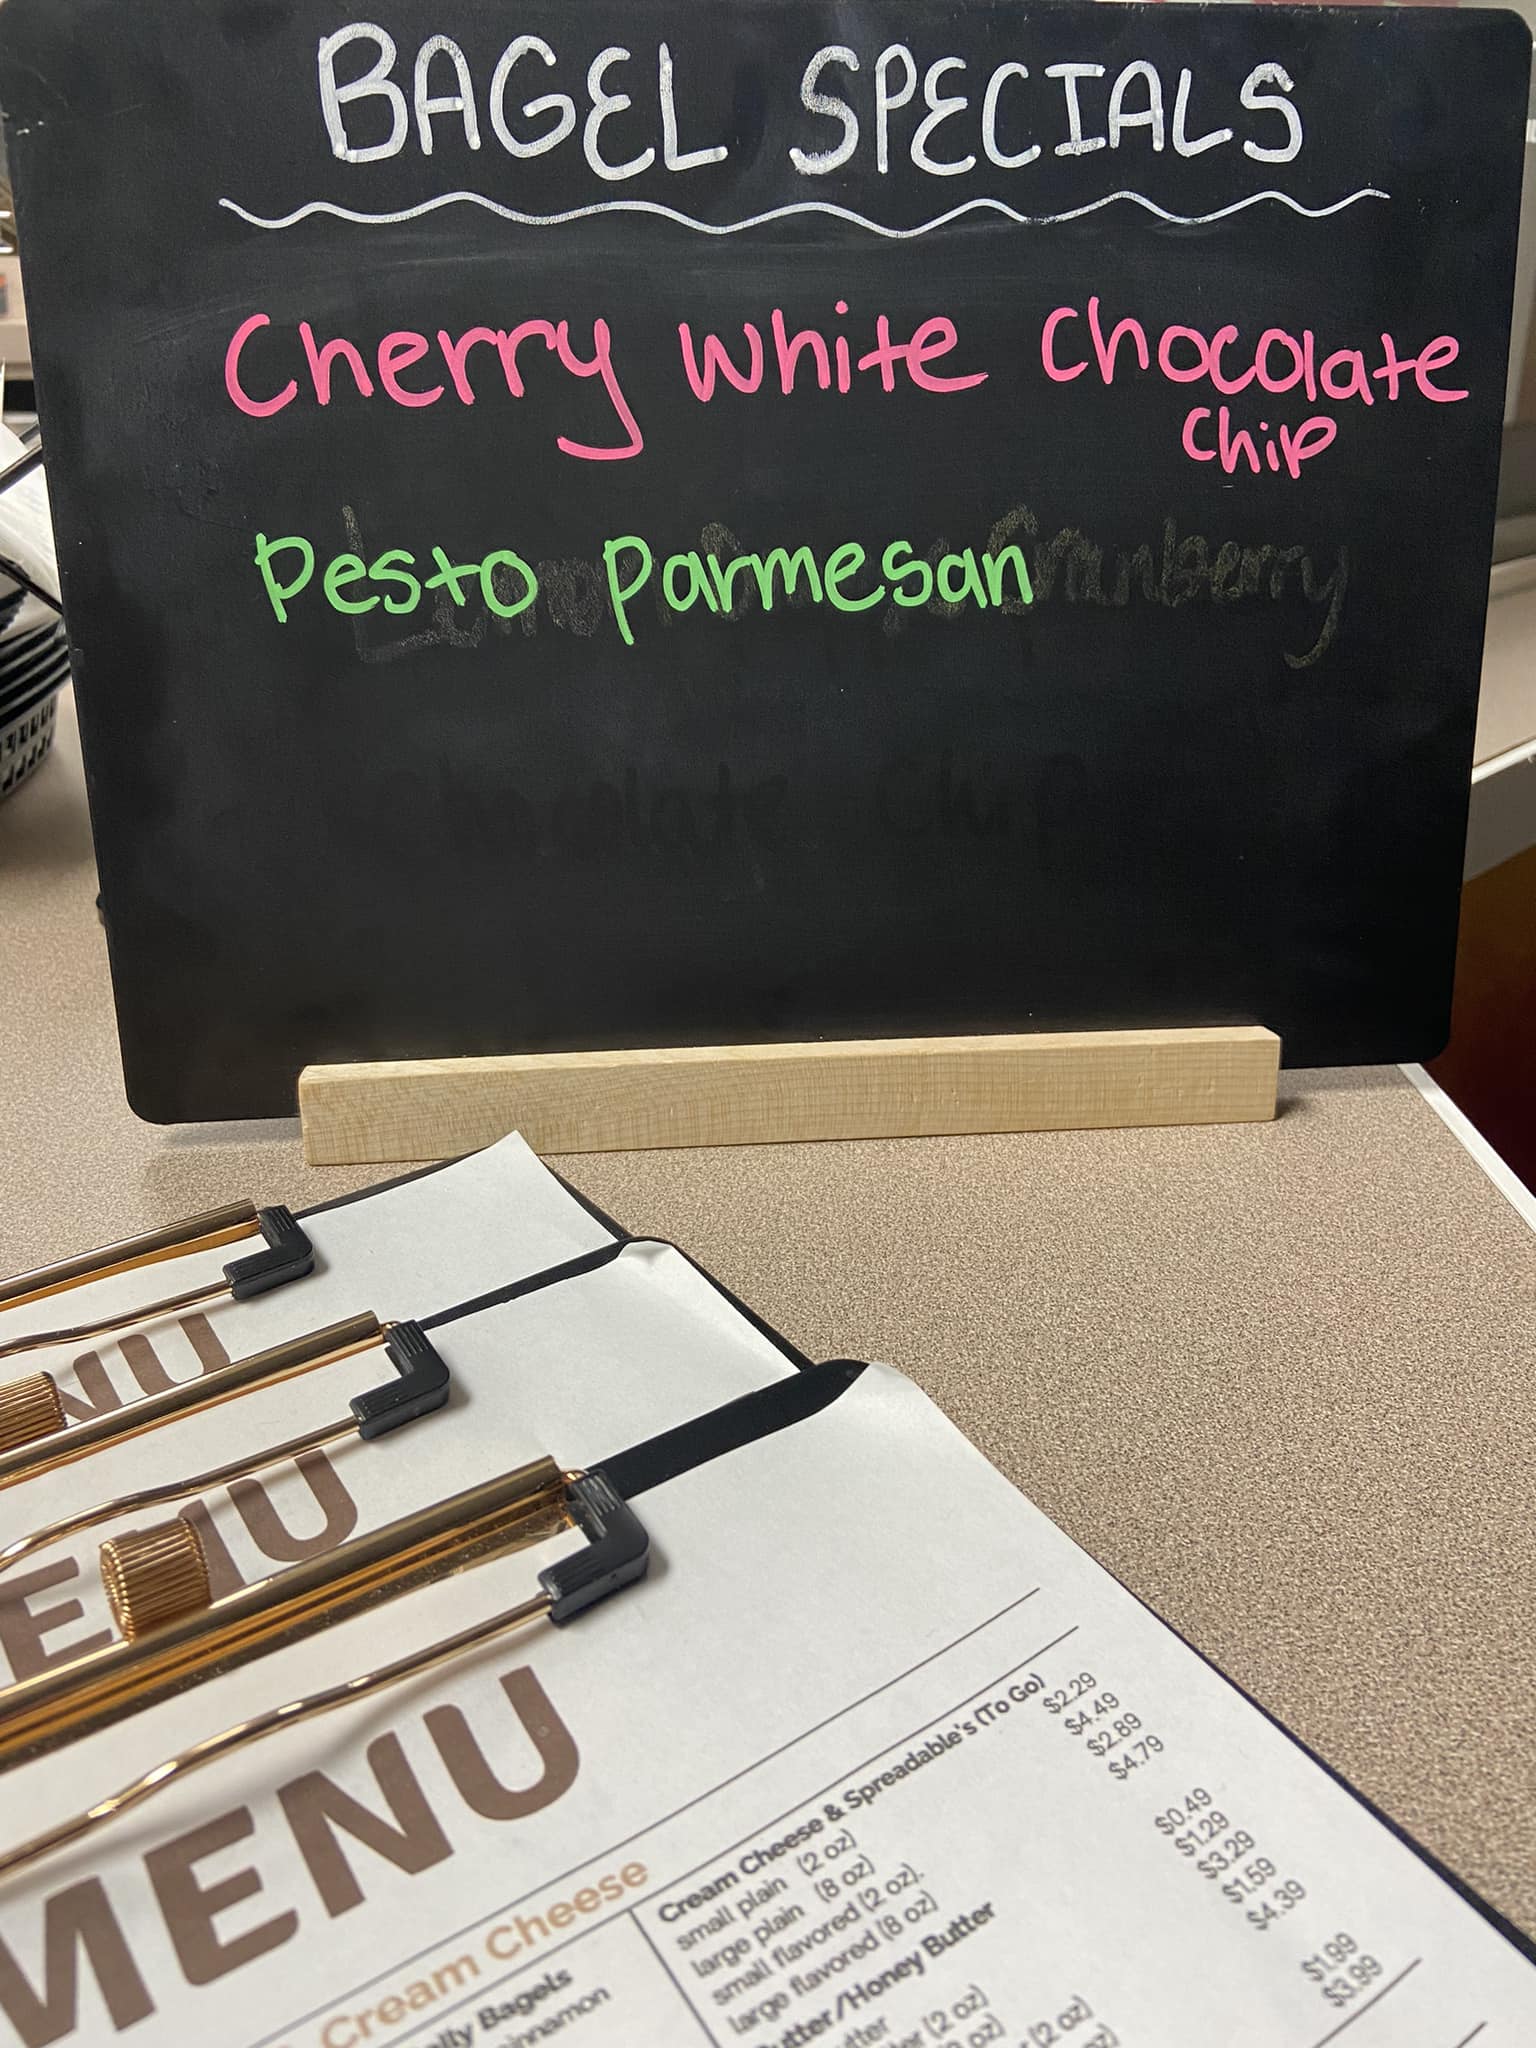 BAGEL SPECIALS
Cherry White Chocolate
Chip
Pesto Parmesan
Cranberry
Chocolate Chip
NU
ENU
MENU
Cream Cheese
Bagels
Cream Cheese & Spreadable's (To Go)
small plain (2 oz) $2.29
large plain (8 oz) $4.49
small flavored (2 oz). $2.89
large flavored (8 oz) $4.79
/Honey Butter
(2 oz) $0.49
$1.29
(2 oz) $3.29
$1.59
$4.39
$1.99
$3.99